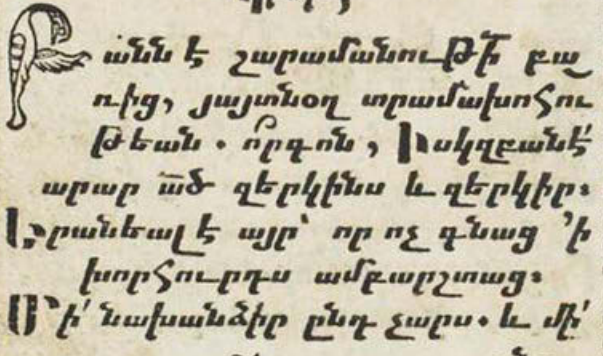 Բանն է շարամանութի՟ բա
ռից, յայտնօղ տրամախոհու
թեան. ո՟րգոն, Իսկզբանէ՛
արար ա՟ծ զերկինս և զերկիր։
Երանեալ է այր՝ որ ոչ գնաց ՚ի
խորհուրդս ամբարշտաց։
Մի՛ նախանձիր ընդ չարս. և մի՛